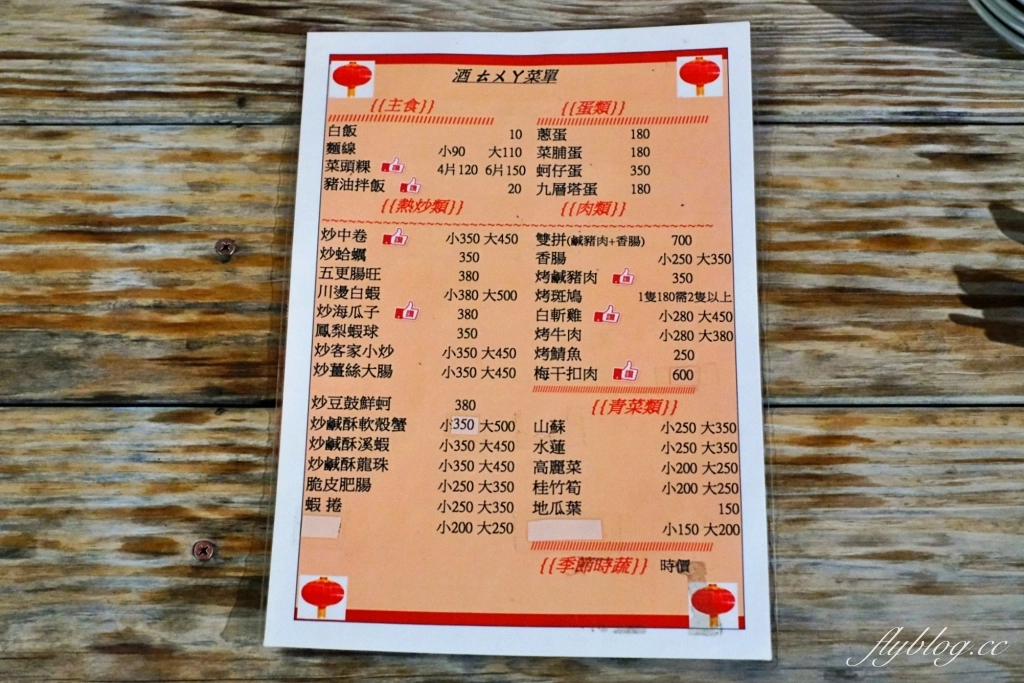 酒ㄊㄨㄚ菜單
{{主食}}
白飯 10
麵線 小90 大110
菜頭粿 讚 4片120 6片150
豬油拌飯 讚 20
{{蛋類}}
蔥蛋 180
菜脯蛋 180
蚵仔蛋 350
九層塔蛋 180
{{熱炒類}}
炒中卷 讚 小350 大450
炒蛤蠣 350
五更腸旺 380
川燙白蝦 小380 大500
炒海瓜子 讚 380
鳳梨蝦球 350
炒客家小炒 小350 大450
炒薑絲大腸 小350 大450
炒豆鼓鮮蚵 380
炒鹹酥軟殼蟹 小350 大500
炒鹹酥溪蝦 小350 大450
炒鹹酥龍珠 小350 大450
脆皮肥腸 小250 大350
蝦捲 小250 大350
小200 大250
{{肉類}}
雙拼(鹹豬肉+香腸) 700
香腸 小250 大350
烤鹹豬肉 讚 350
烤斑鳩 1隻180需2隻以上
白斬雞 讚 小280 大450
烤牛肉 小280 大380
烤鯖魚 250
梅干扣肉 讚 600
{{青菜類}}
山蘇 小250 大350
水蓮 小250 大350
高麗菜 小200 大250
桂竹筍 小200 大250
地瓜葉 150
小150 大200
{{季節時蔬}} 時價
flyblog.cc